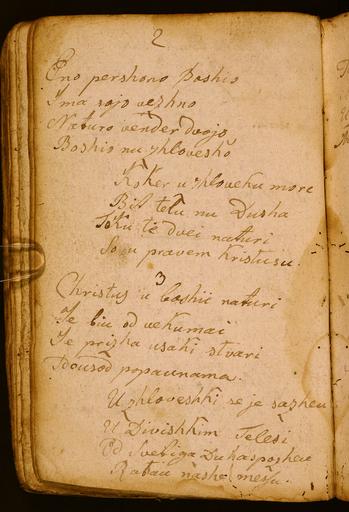 2
Eno pershono Boshio
Ima sojo vezhno
Naturo vender dvojo
Boshio nu zhlovesho
Koker u zhloveku more
Bit telu nu Dusha
Toku te dvei naturi
So u pravem Kristusu.
3
Christus u boshii naturi
Je biu od vekumai
Je prisha usaki stvari
popaunama.
U zhloveshki se je
U Divishkim Telesi
Od Svetiga
Ratau nashe mesu.